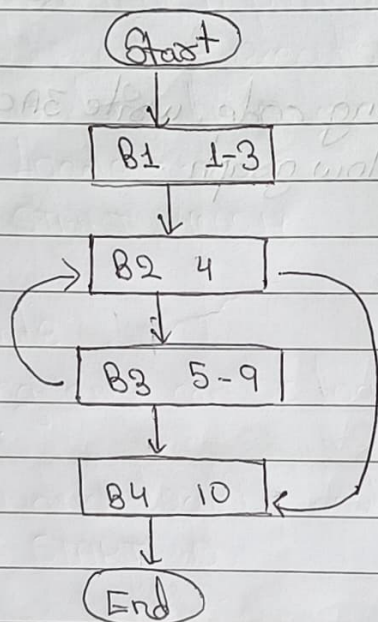 Start
B1 1-3
B2 4
B3 5-9
B4 10
End